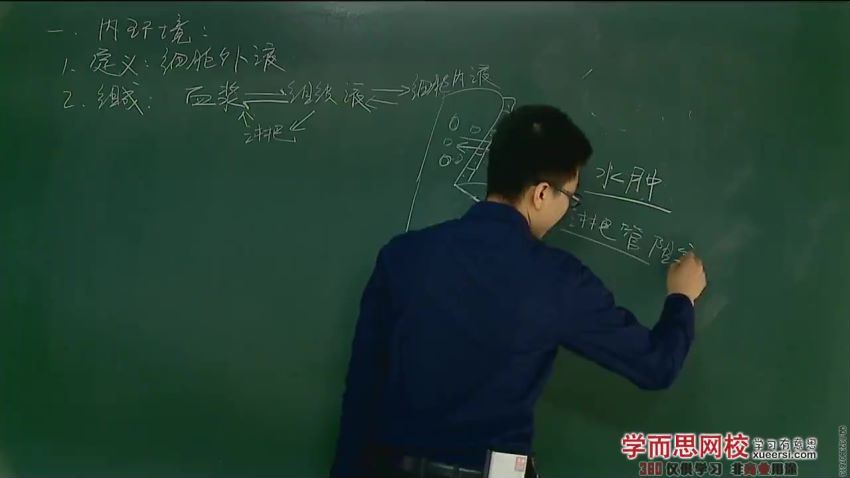 一、内环境：
1、定义：细胞外液
2、组成：血浆⇌组织液⇌细胞内液
淋巴
水肿
淋巴管阻
学而思网校 学习有意思
xueersi.com
360仅供学习 非商业用途